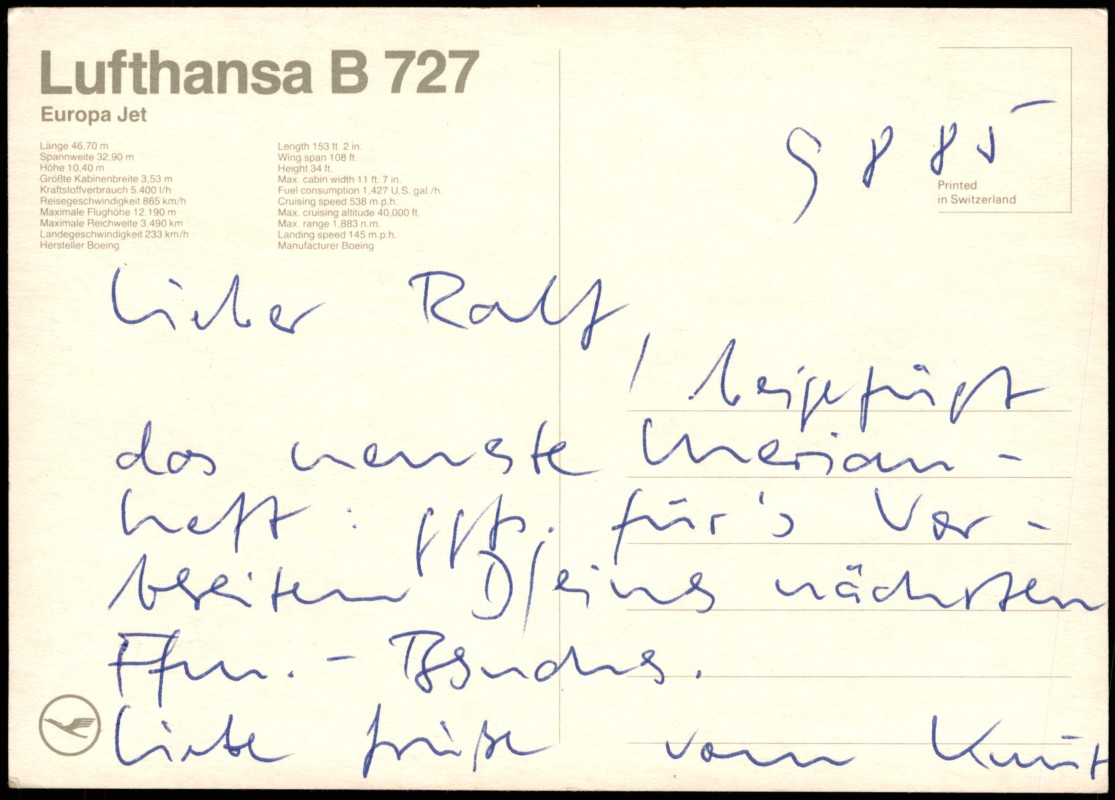 Lufthansa B 727
Europa Jet
Länge 46,70 m
Spannweite 32,90 m
Höhe 10,40 m
Größte Kabinenbreite 3,53 m
Kraftstoffverbrauch 5.400 l/h
Reisegeschwindigkeit 865 km/h
Maximale Flughöhe 12.190 m
Maximale Reichweite 3.490 km
Landegeschwindigkeit 233 km/h
Hersteller Boeing
Length 153 ft. 2 in.
Wing span 108 ft.
Height 34 ft.
Max. cabin width 11 ft. 7 in.
Fuel consumption 1,427 U.S. gal./h.
Cruising speed 538 m.p.h.
Max. cruising altitude 40,000 ft.
Max. range 1,883 n.m.
Landing speed 145 m.p.h.
Manufacturer Boeing
9 8 85
Printed
in Switzerland
Lieber Ralf,
beigefügt
das neuste Merian-
heft: ggfs. für's Vor-
bereiten D/eines nächsten
Ffm.-Besuches.
Liebe Grüße vom Knut